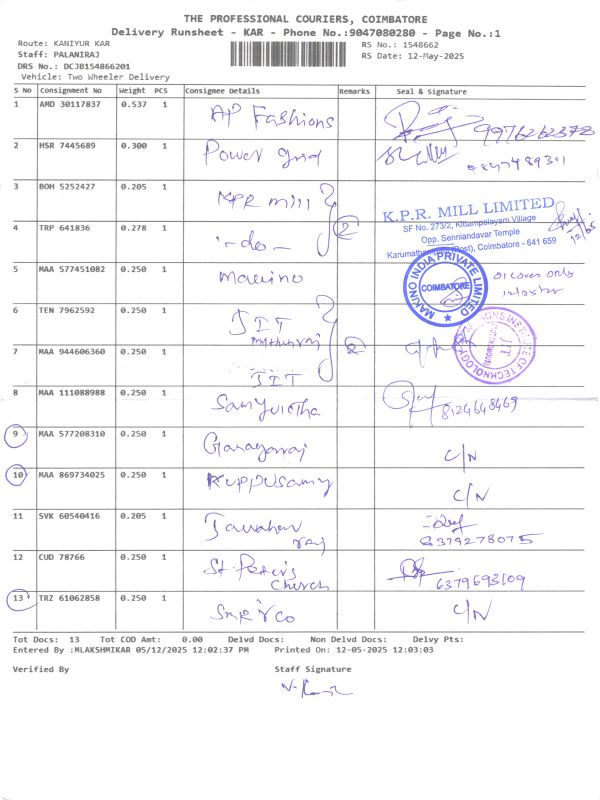 THE PROFESSIONAL COURIERS, COIMBATORE
Delivery Runsheet - KAR - Phone No.:9047080280 - Page No.:1
Route: KANIYUR KAR RS No.: 1548662
Staff: PALANIRAJ RS Date: 12-May-2025
DRS No.: DCJB154866201
Vehicle: Two Wheeler Delivery
S No Consignment No Weight PCS Consignee Details Remarks Seal & Signature
1 AMD 30117837 0.537 1 AP Fashions
2 HSR 7445689 0.300 1 Power grid
3 BOH 5252427 0.205 1 KPR mill
K.P.R. MILL LIMITED
SF No. 273/2, Kittampolayam Village
Opp. Senniandavar Temple
Karumathampatti (Post), Coimbatore - 641 659
4 TRP 641836 0.278 1 -do- 2
5 MAA 577451082 0.250 1 Makino
MAKINO INDIA PRIVATE LIMITED
COIMBATORE
01 cover only
6 TEN 7962592 0.250 1 JIT
7 MAA 944606360 0.250 1 JIT 2
INSTITUTE OF TECHNOLOGY
JIT
8 MAA 111088988 0.250 1 Samyuktha 8124648469
9 MAA 577208310 0.250 1 C/N
10 MAA 869734025 0.250 1 Kuppusamy C/N
11 SVK 60540416 0.205 1 6379278075
12 CUD 78766 0.250 1 St. Peter's Church 6379693109
13 TRZ 61062858 0.250 1 C/N
Tot Docs: 13 Tot COD Amt: 0.00 Delvd Docs: Non Delvd Docs: Delvy Pts:
Entered By :MLAKSHMIKAR 05/12/2025 12:02:37 PM Printed On: 12-05-2025 12:03:03
Verified By Staff Signature